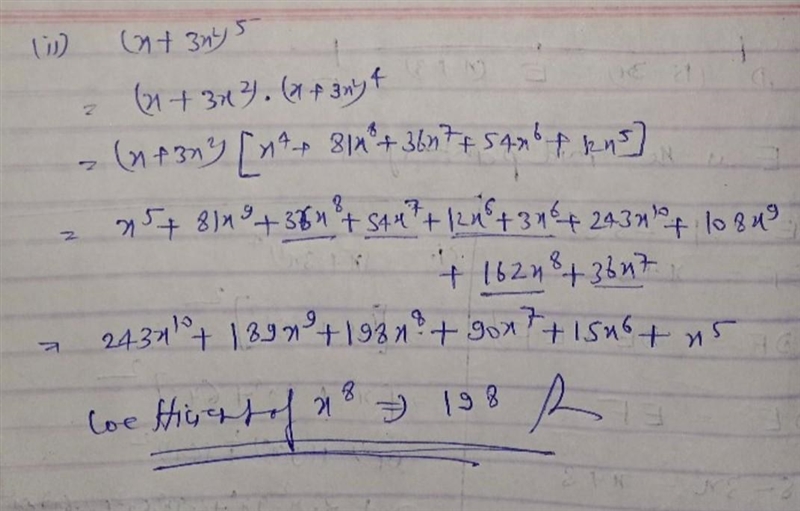 (ii) (x + 3x²)⁵
= (x + 3x²) · (x + 3x²)⁴
= (x + 3x²) [x⁴ + 81x⁸ + 36x⁷ + 54x⁶ + 12x⁵]
= x⁵ + 81x⁹ + 36x⁸ + 54x⁷ + 12x⁶ + 3x⁶ + 243x¹⁰ + 108x⁹
+ 162x⁸ + 36x⁷
⇒ 243x¹⁰ + 189x⁹ + 198x⁸ + 90x⁷ + 15x⁶ + x⁵
Coefficient of x⁸ ⇒ 198